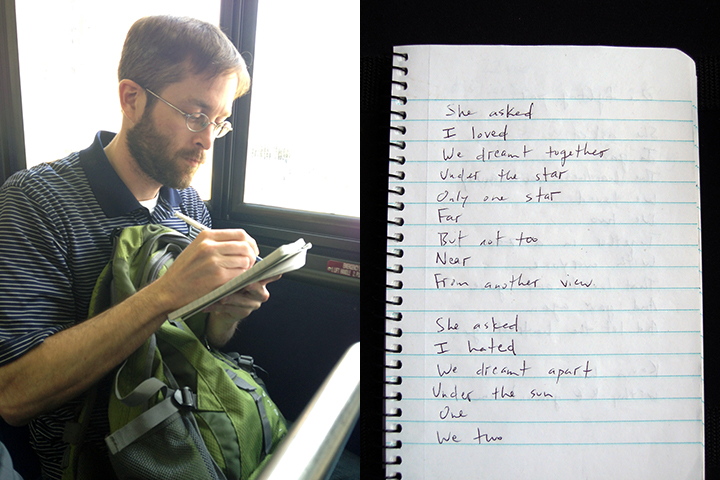 She asked
I loved
We dreamt together
Under the star
Only one star
Far
But not too
Near
From another view.
She asked
I hated
We dreamt apart
Under the sun
One
We two